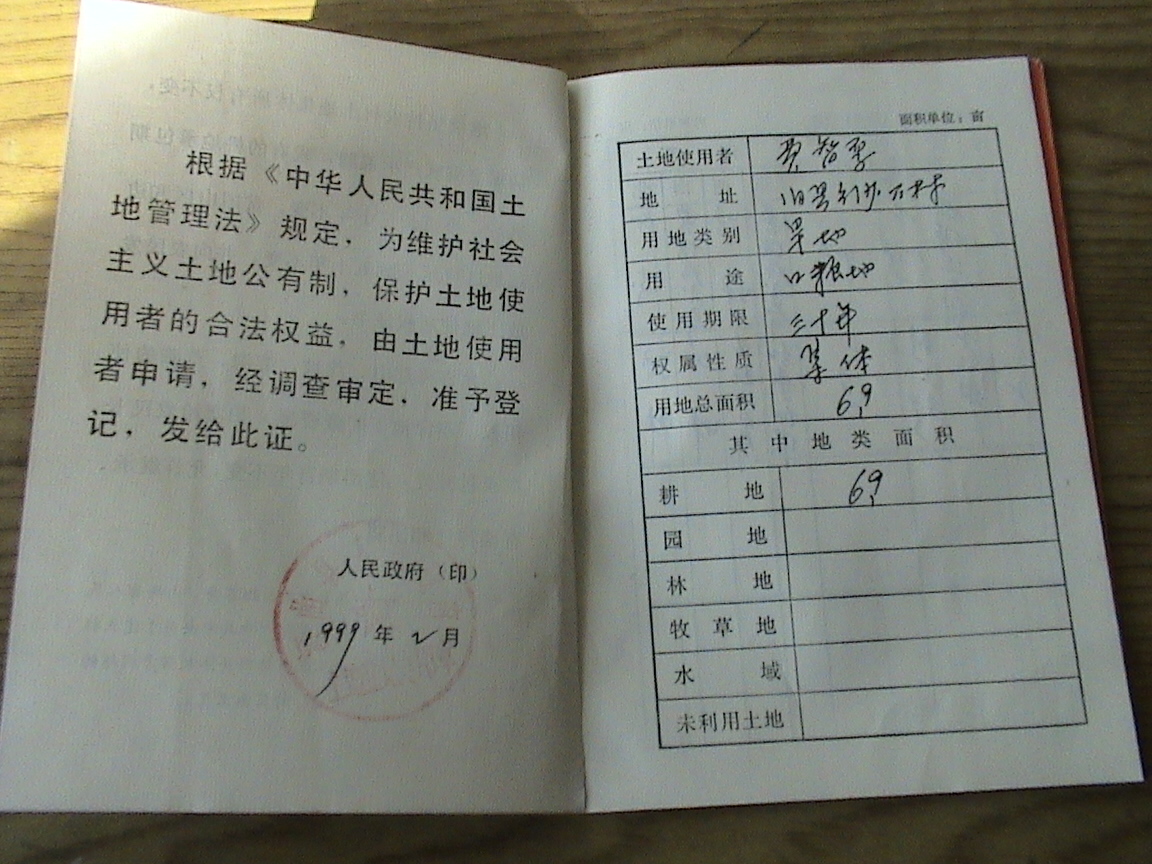 根据《中华人民共和国土
地管理法》规定，为维护社会
主义土地公有制，保护土地使
用者的合法权益，由土地使用
者申请，经调查审定，准予登
记，发给此证。
人民政府（印）
1999年2月
面积单位：亩
土地使用者
地址
用地类别 旱地
用途 口粮地
使用期限 三十年
权属性质 集体
用地总面积 6.9
其中地类面积
耕地 6.9
园地
林地
牧草地
水域
未利用土地